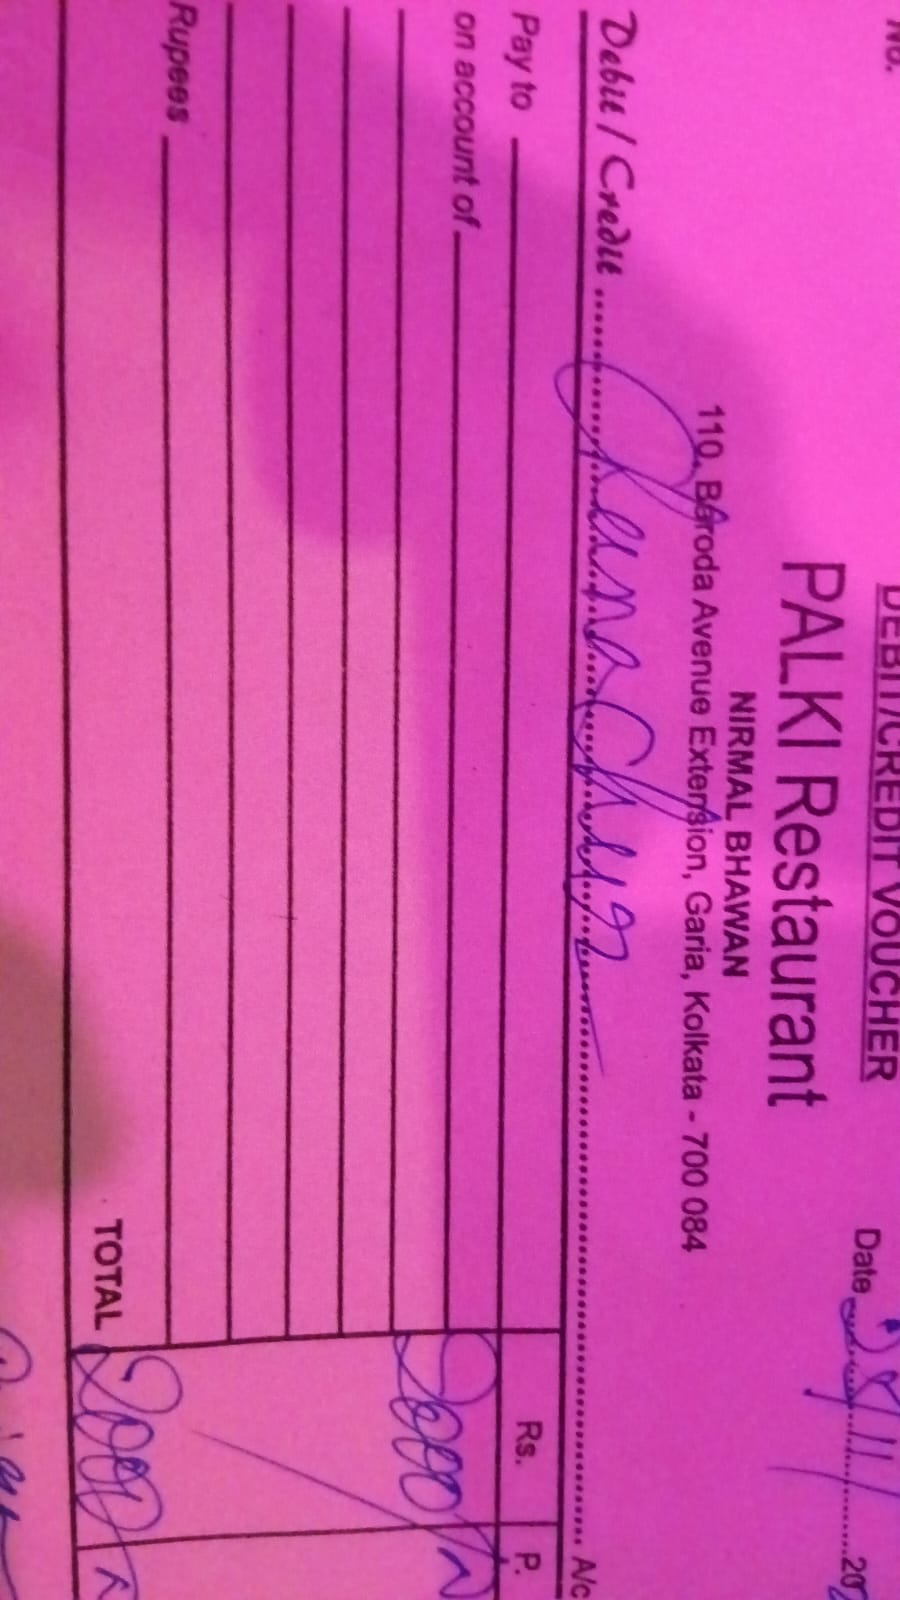 No.
DEBIT/CREDIT VOUCHER
PALKI Restaurant
NIRMAL BHAWAN
110, Baroda Avenue Extension, Garia, Kolkata - 700 084
Date 202
Debit / Credit A/c
Pay to Rs. P.
on account of 2000/-
Rupees
TOTAL 2000/-